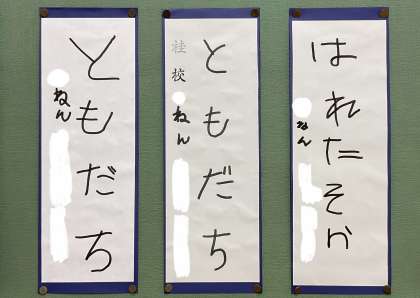 はれたそら
ねん
ともだち
桂校
ねん
ともだち
ねん